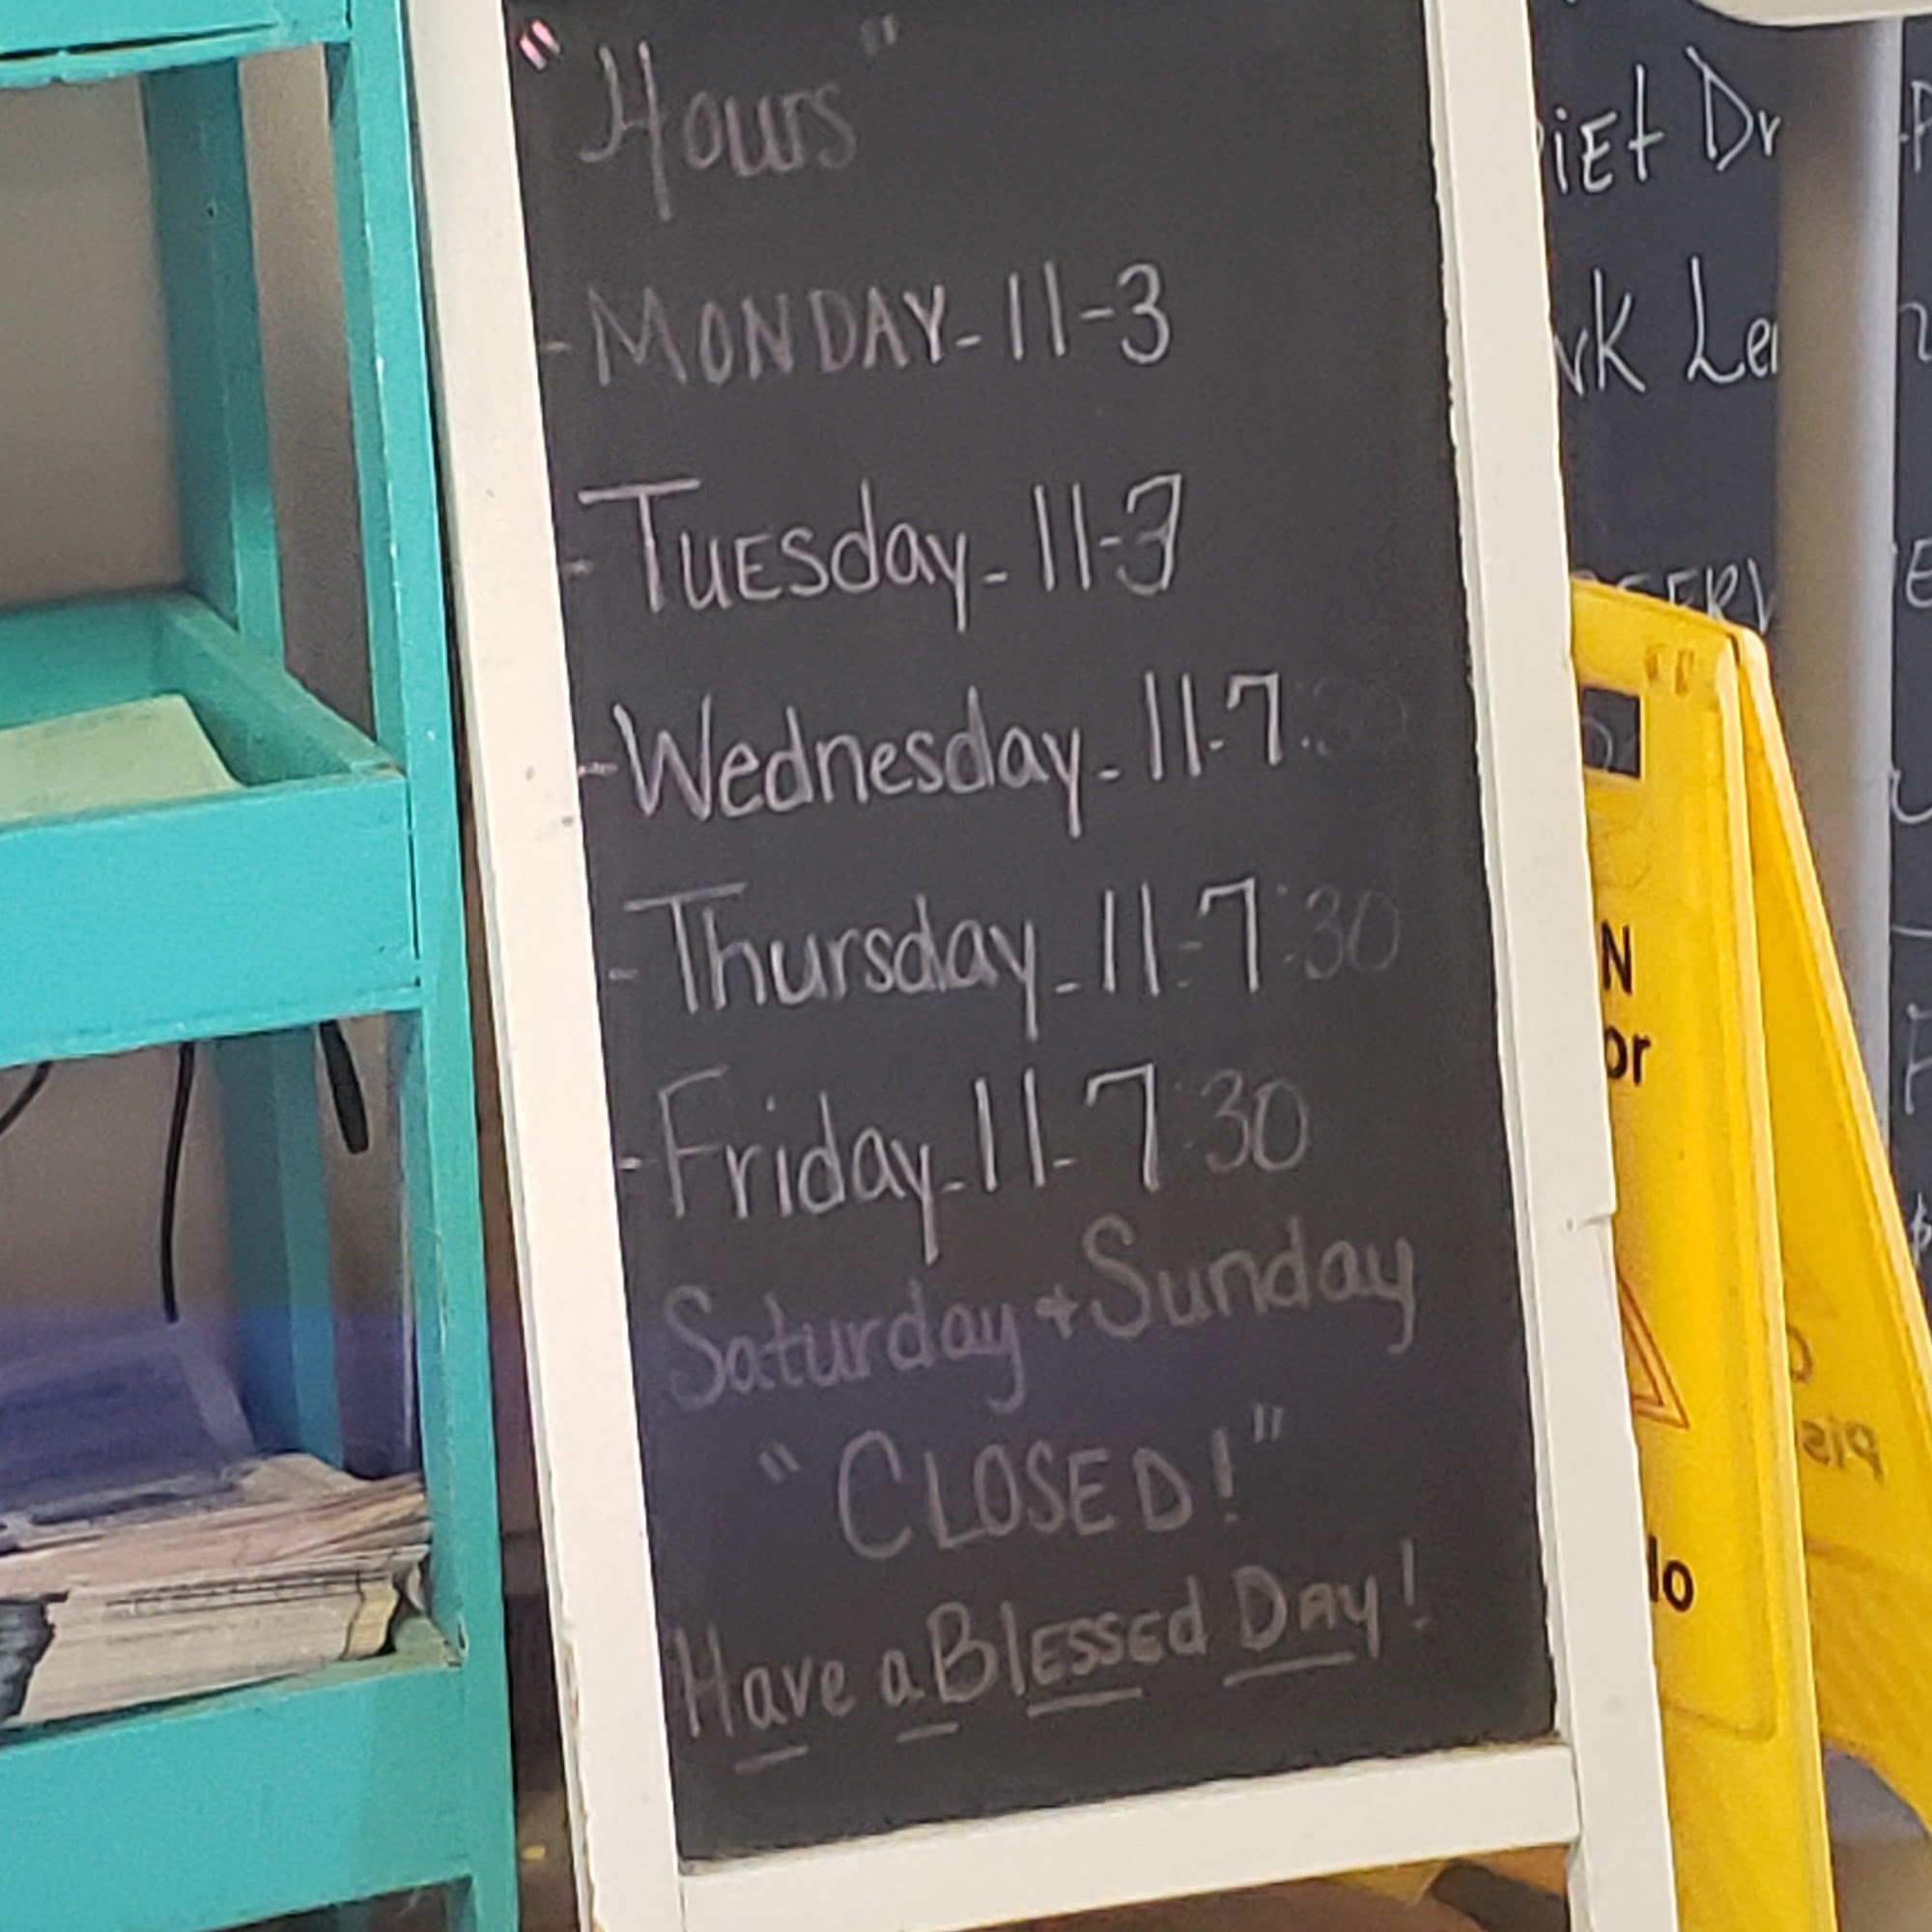 "Hours"
- MONDAY - 11-3
- TuESday - 11-3
- Wednesday - 11-7:30
- Thursday - 11-7:30
- Friday - 11-7:30
Saturday + Sunday
"CLOSED!"
Have a BlESSEd DAy!
iEt Dr
K Le
N
or
lo